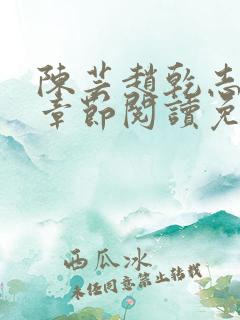 陳芸趙乾志
章節閱讀免
西瓜冰
未经同意禁止转载